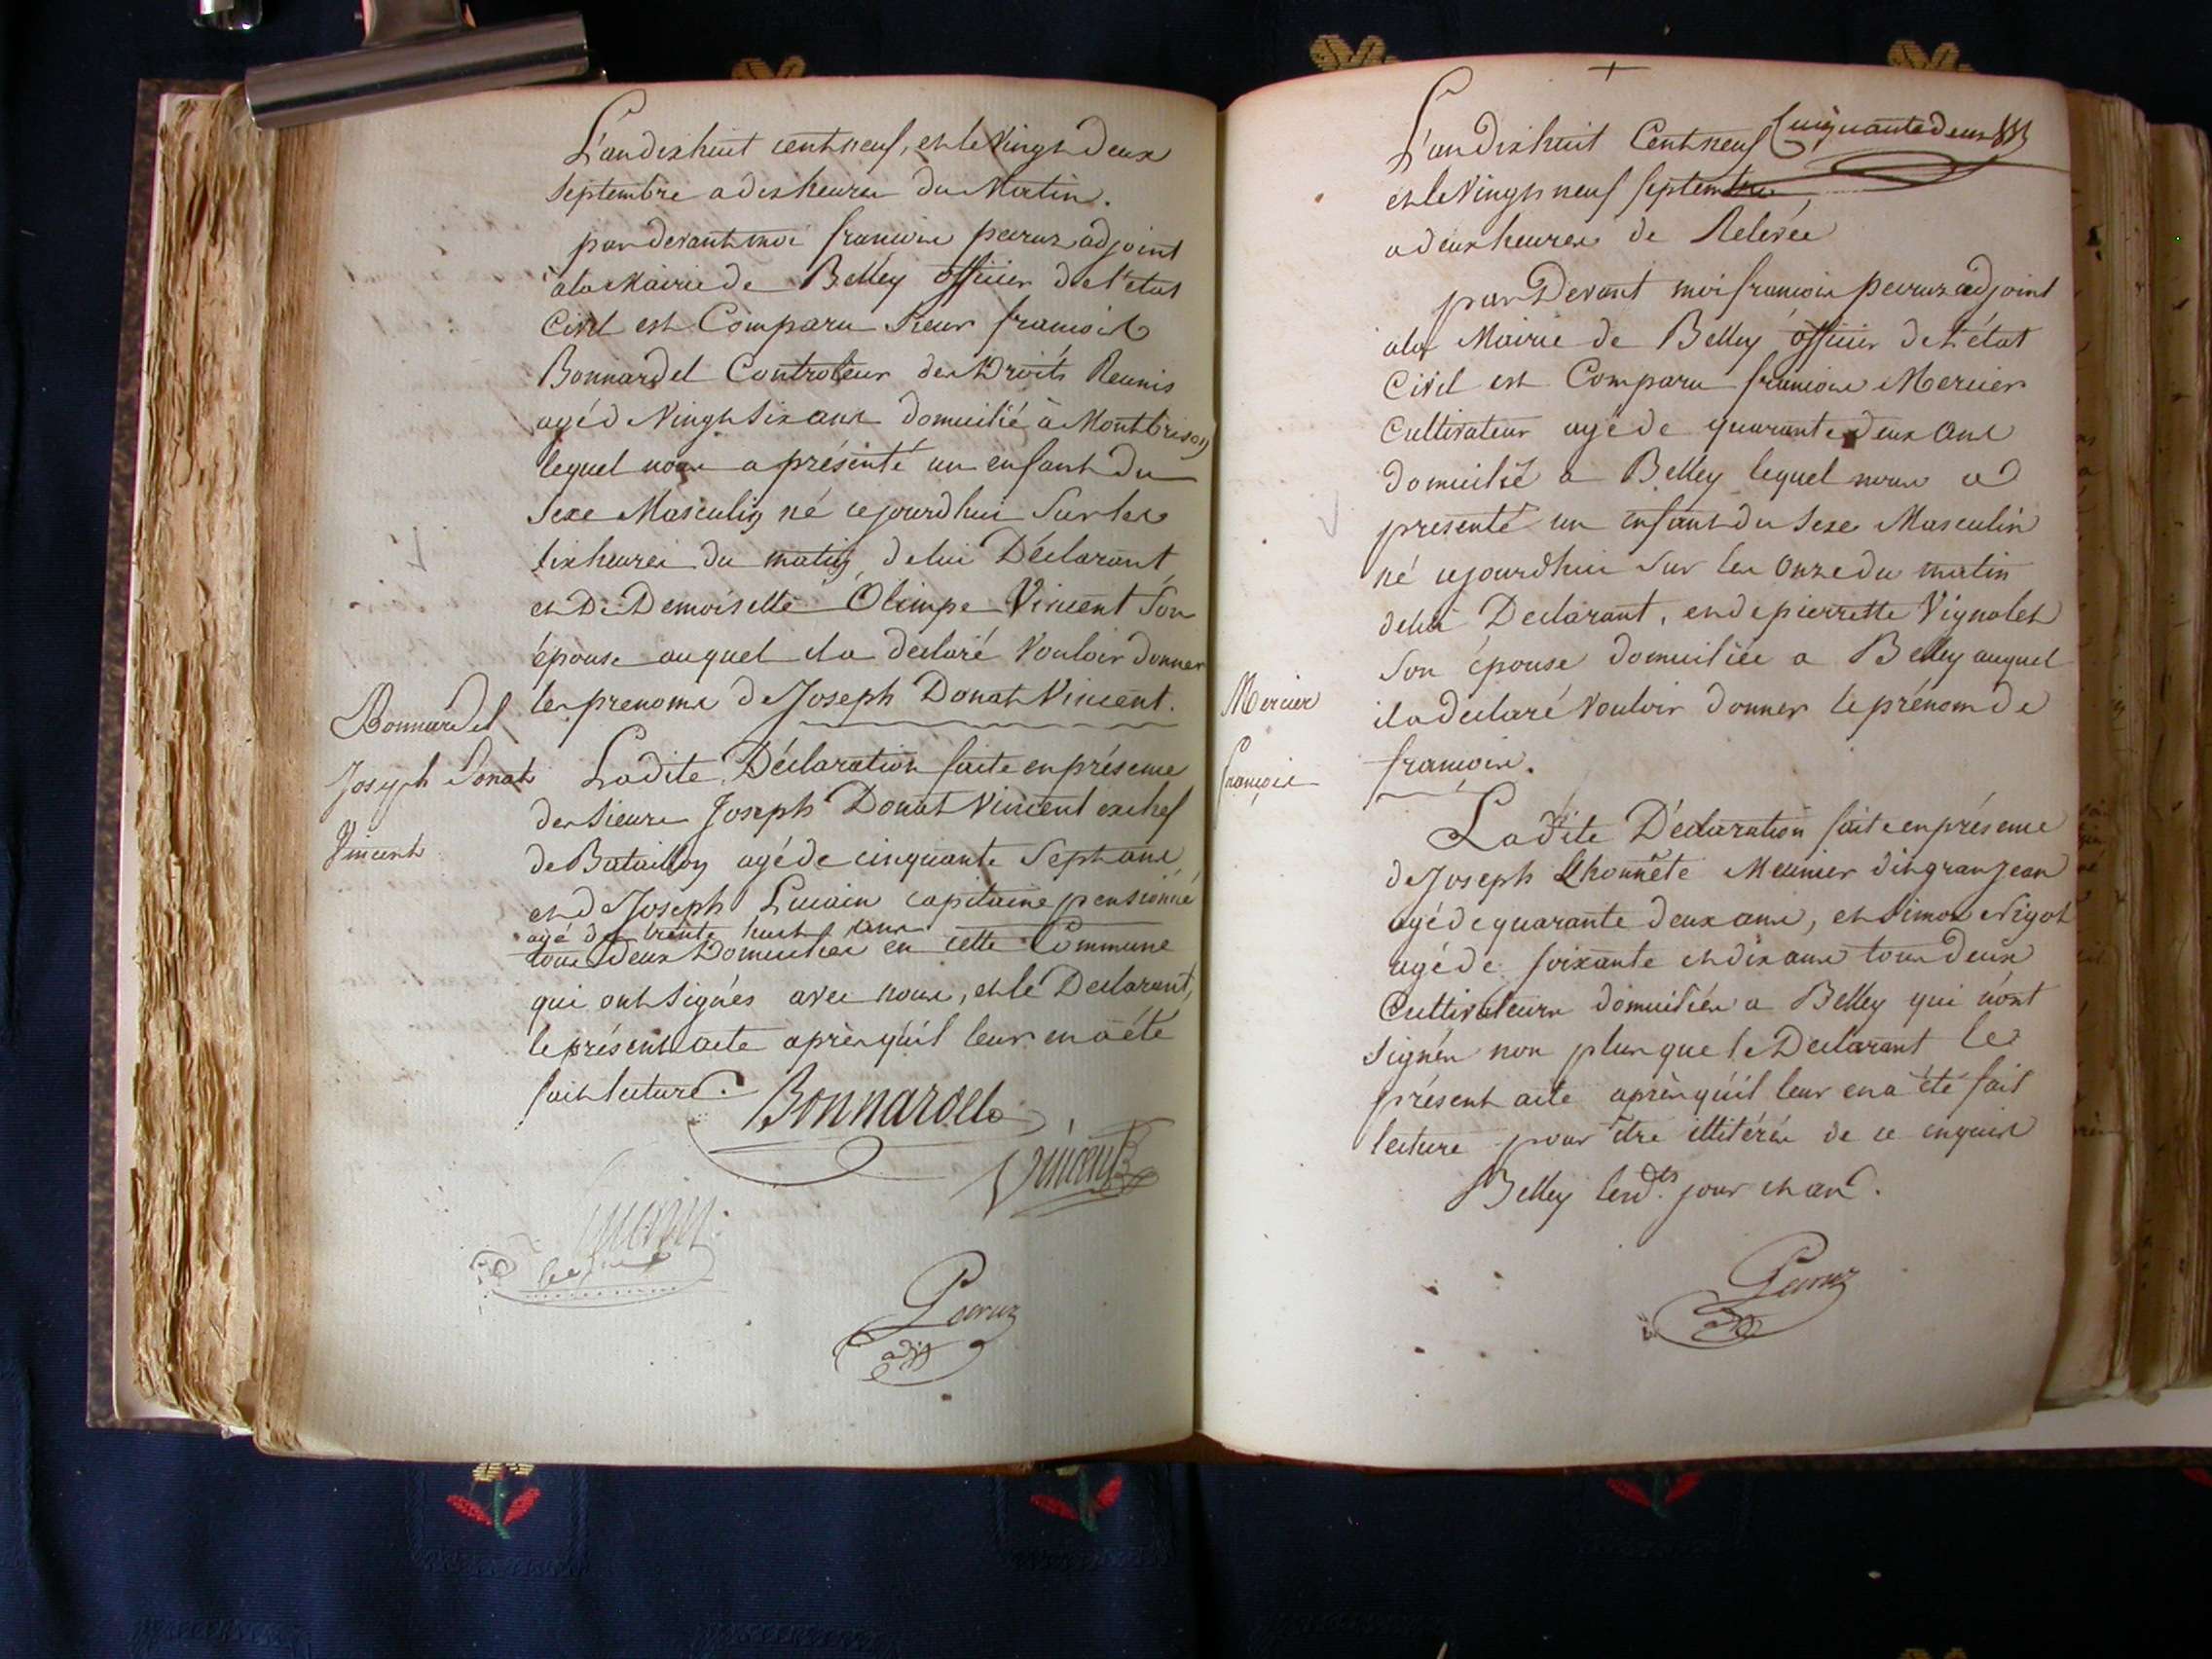 L'an dix huit cent neuf, et le vingt deux
septembre a dix heures du Matin.
par devant moi francois peruz adjoint
à la Mairie de Belley officier de l'état
Civil est Comparu Sieur francois
Bonnardel Controleur des Droits Reunis
agé de Vingt six ans domicilié à Montbrison
lequel nous a présenté un enfant du
Sexe Masculin né cejourdhui Sur les
six heures du matin, de lui Déclarant
et De Demoiselle Olimpe Vincent Son
épouse auquel il a declaré Vouloir donner
les prenoms de Joseph Donat Vincent.
Bonnardel
Joseph Donat
Vincent
Ladite Déclaration faite en présence
des Sieurs Joseph Donat Vincent ex chef
de Bataillon agé de cinquante Sept ans
et de Joseph Lucain capitaine pensionné
agé de trente huit ans
tous Deux Domiciliés en cette Commune
qui ont Signés avec nous, et le Declarant,
le présent acte après qu'il leur en a été
fait lecture.
Bonnardel
Vincent
Peruz
adj
Cinquante deux
L'an Dix huit Cent neuf
et le Vingt neuf Septembre,
a deux heures de Relevée
par Devant moi francois peruz adjoint
à la Mairie de Belley officier de l'état
Civil est Comparu francois Mercier
Cultivateur agé de quarante deux ans
domicilié a Belley lequel nous a
presenté un enfant du Sexe Masculin
né cejourdhui Sur les Onze du matin
de lui Declarant, et de pierrette Vignolet
Son épouse domiciliée a Belley auquel
il a declaré Vouloir donner le prénom de
francois.
Mercier
françois
Ladite Déclaration faite en présence
de Joseph Lhonnête Meunier dingranjean
agé de quarante deux ans, et Simon Nigot
agé de soixante et dix ans tous deux
Cultivateurs domiciliés a Belley qui n'ont
Signés non plus que le Declarant le
présent acte après qu'il leur en a été fait
lecture pour être illitérés de ce enquis
Belley lesdts jour et an.
Peruz